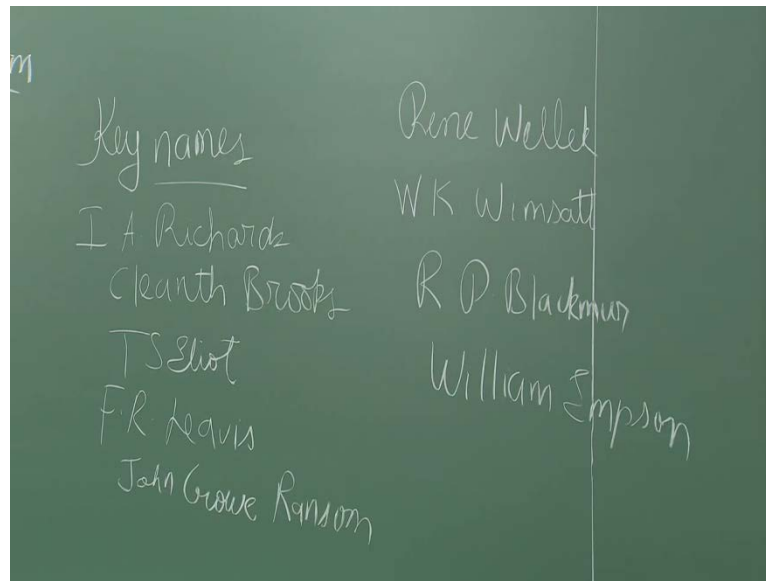 m
Key names
I A. Richards
Cleanth Brooks
T S Eliot
F. R. Leavis
John Crowe Ransom
Rene Wellek
W K Wimsatt
R P. Blackmur
William Empson